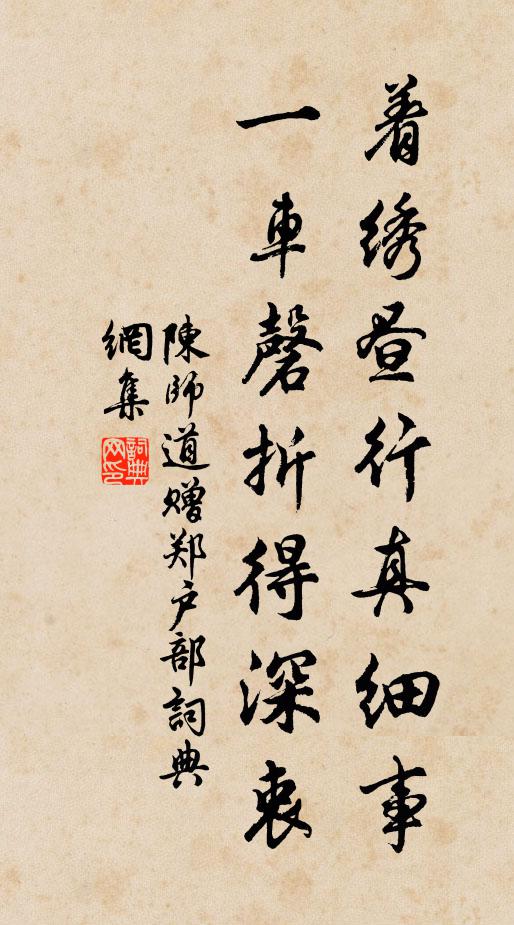 着绣昼行真细事
一車磬折得深衷
陳師道赠郑户部詞典
網集
詞典网印